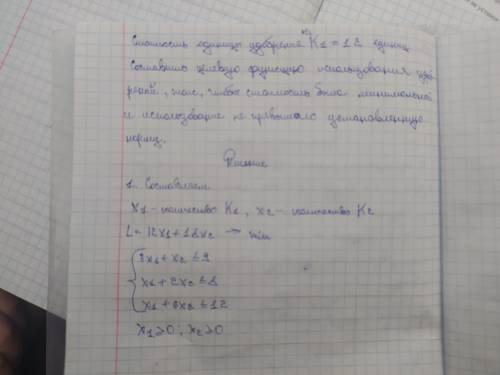 Стоимость единицы удобрения K1 = 12 единиц
Составить целевую функцию использования
, чтобы стоимость была минимальной
и использование не превышало установленную
норму.
Решение
1. Составляем
x1 - количество K1, x2 - количество K2
L = 12x1 + 18x2 → min
x1 + x2 ≤ 9
x1 + 2x2 ≤ 8
x1 + 6x2 ≤ 12
x1 ≥ 0, x2 ≥ 0